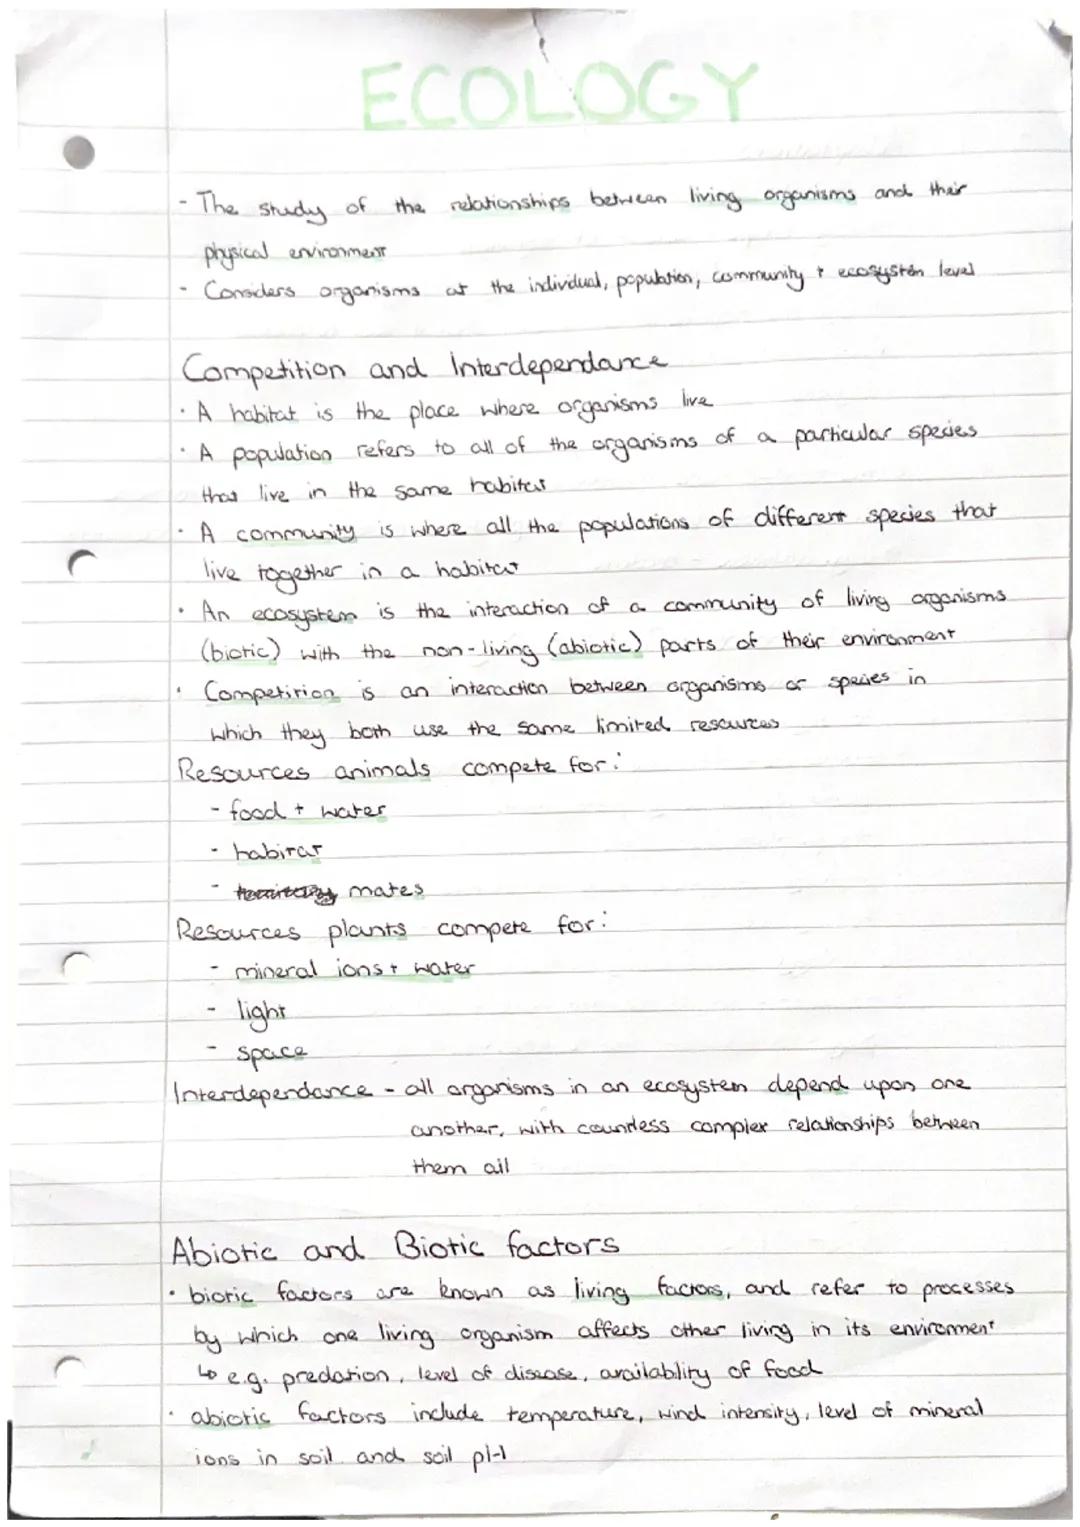 ECOLOGY
- The study of the relationships between living organisms and their
physical environment
- Considers organisms at the individual, population, community + ecosystem level
Competition and Interdependance
· A habitat is the place where organisms live
· A population refers to all of the organisms of a particular species
that live in the same habitat
· A community is where all the populations of different species that
live together in a habitat
· An ecosystem is the interaction of a community of living organisms
(biotic) with the non-living (abiotic) parts of their environment
· Competition is an interaction between organisms or species in
which they both use the same limited resources
Resources animals compete for:
- food + water
- habitat
- territory mates
Resources plants compete for:
- mineral ions + water
- light
- space
Interdependance - all organisms in an ecosystem depend upon one
another, with countless complex relationships between
them all
Abiotic and Biotic factors
· biotic factors are known as living factors, and refer to processes
by which one living organism affects other living in its environment
↳ e.g. predation, level of disease, availability of food
· abiotic factors include temperature, wind intensity, level of mineral
ions in soil and soil pH